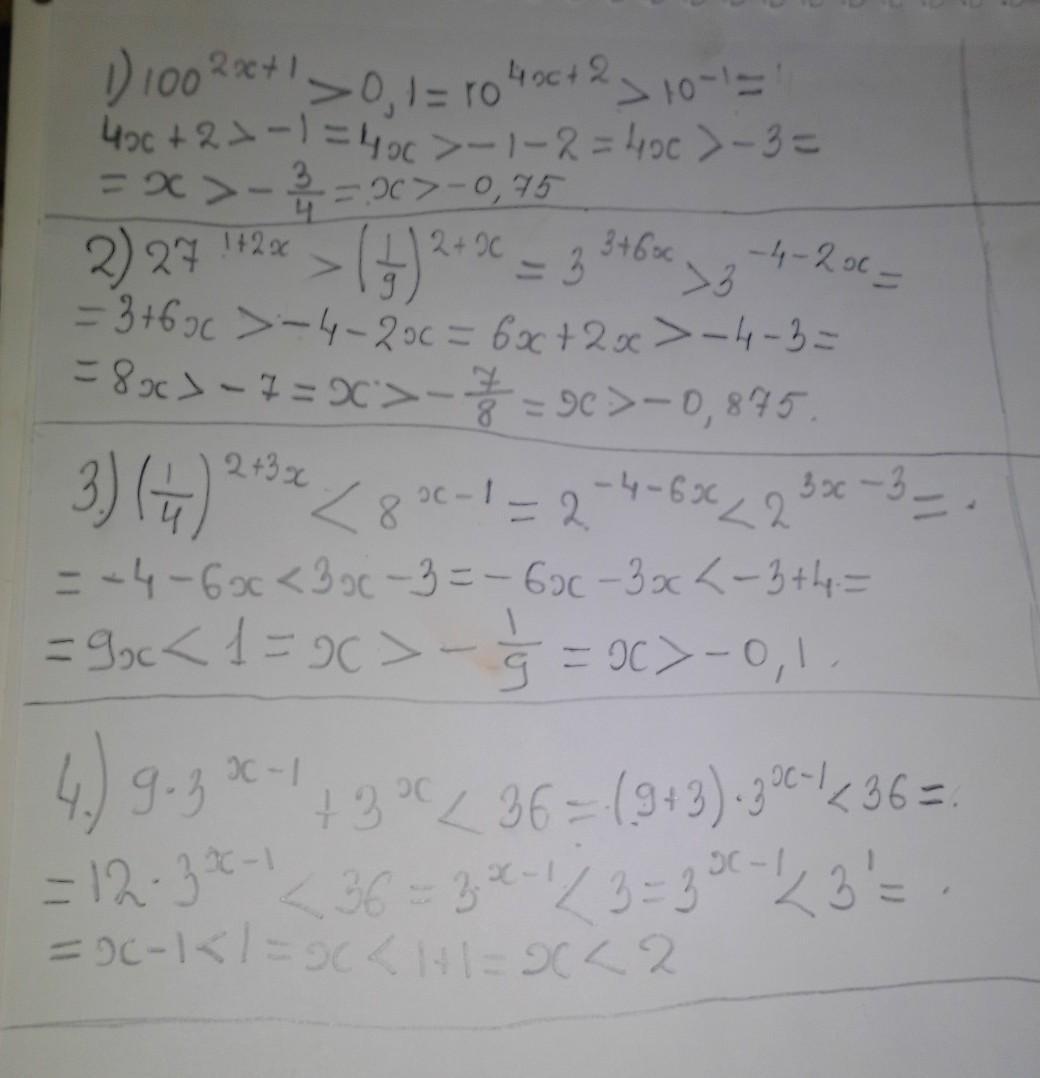 1) 100^{2x+1} > 0,1 = 10^{4x+2} > 10^{-1} =
4x + 2 > -1 = 4x > -1 - 2 = 4x > -3 =
= x > -\frac{3}{4} = x > -0,75
2) 27^{1+2x} > (\frac{1}{9})^{2+x} = 3^{3+6x} > 3^{-4-2x} =
= 3+6x > -4-2x = 6x+2x > -4-3 =
= 8x > -7 = x > -\frac{7}{8} = x > -0,875.
3.) (\frac{1}{4})^{2+3x} < 8^{x-1} = 2^{-4-6x} < 2^{3x-3} =
= -4-6x < 3x-3 = -6x-3x < -3+4 =
= 9x < 1 = x > -\frac{1}{9} = x > -0,1.
4.) 9·3^{x-1} + 3^{x} < 36 = (9+3)·3^{x-1} < 36 =
= 12·3^{x-1} < 36 = 3^{x-1} < 3 = 3^{x-1} < 3^{1} =
= x-1 < 1 = x < 1+1 = x < 2